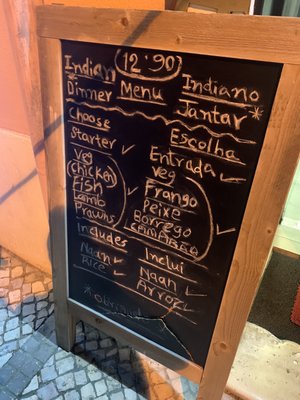 12'90
Indian Indiano
Dinner Menu Jantar
Choose Escolha
Starter Entrada
Veg Veg
Chicken Frango
Fish Peixe
Lamb Borrego
Prawns CAMARÃO
Includes Inclui
Naan Naan
Rice Arroz